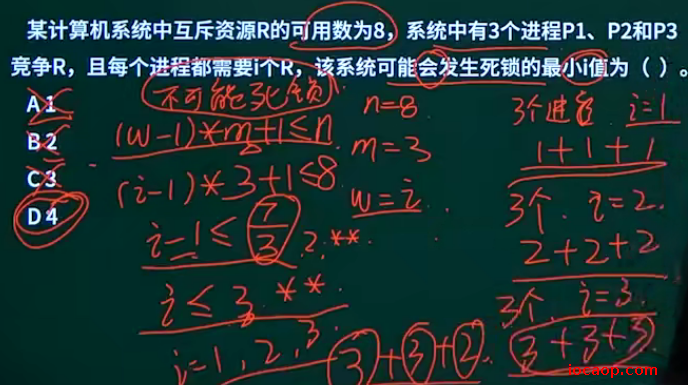 某计算机系统中互斥资源R的可用数为8，系统中有3个进程P1、P2和P3
竞争R，且每个进程都需要i个R，该系统可能会发生死锁的最小i值为（ ）。
A 1
B 2
C 3
D 4
不可能死锁
(w-1)*m+1≤n
(i-1)*3+1≤8
i-1≤7/3 2.**
i≤3.**
i=1,2,3.
n=8
m=3
w=i
3个进程 i=1
1+1+1
3个. i=2.
2+2+2
3个. i=3.
3+3+3
3+3+2.
iocaop.com